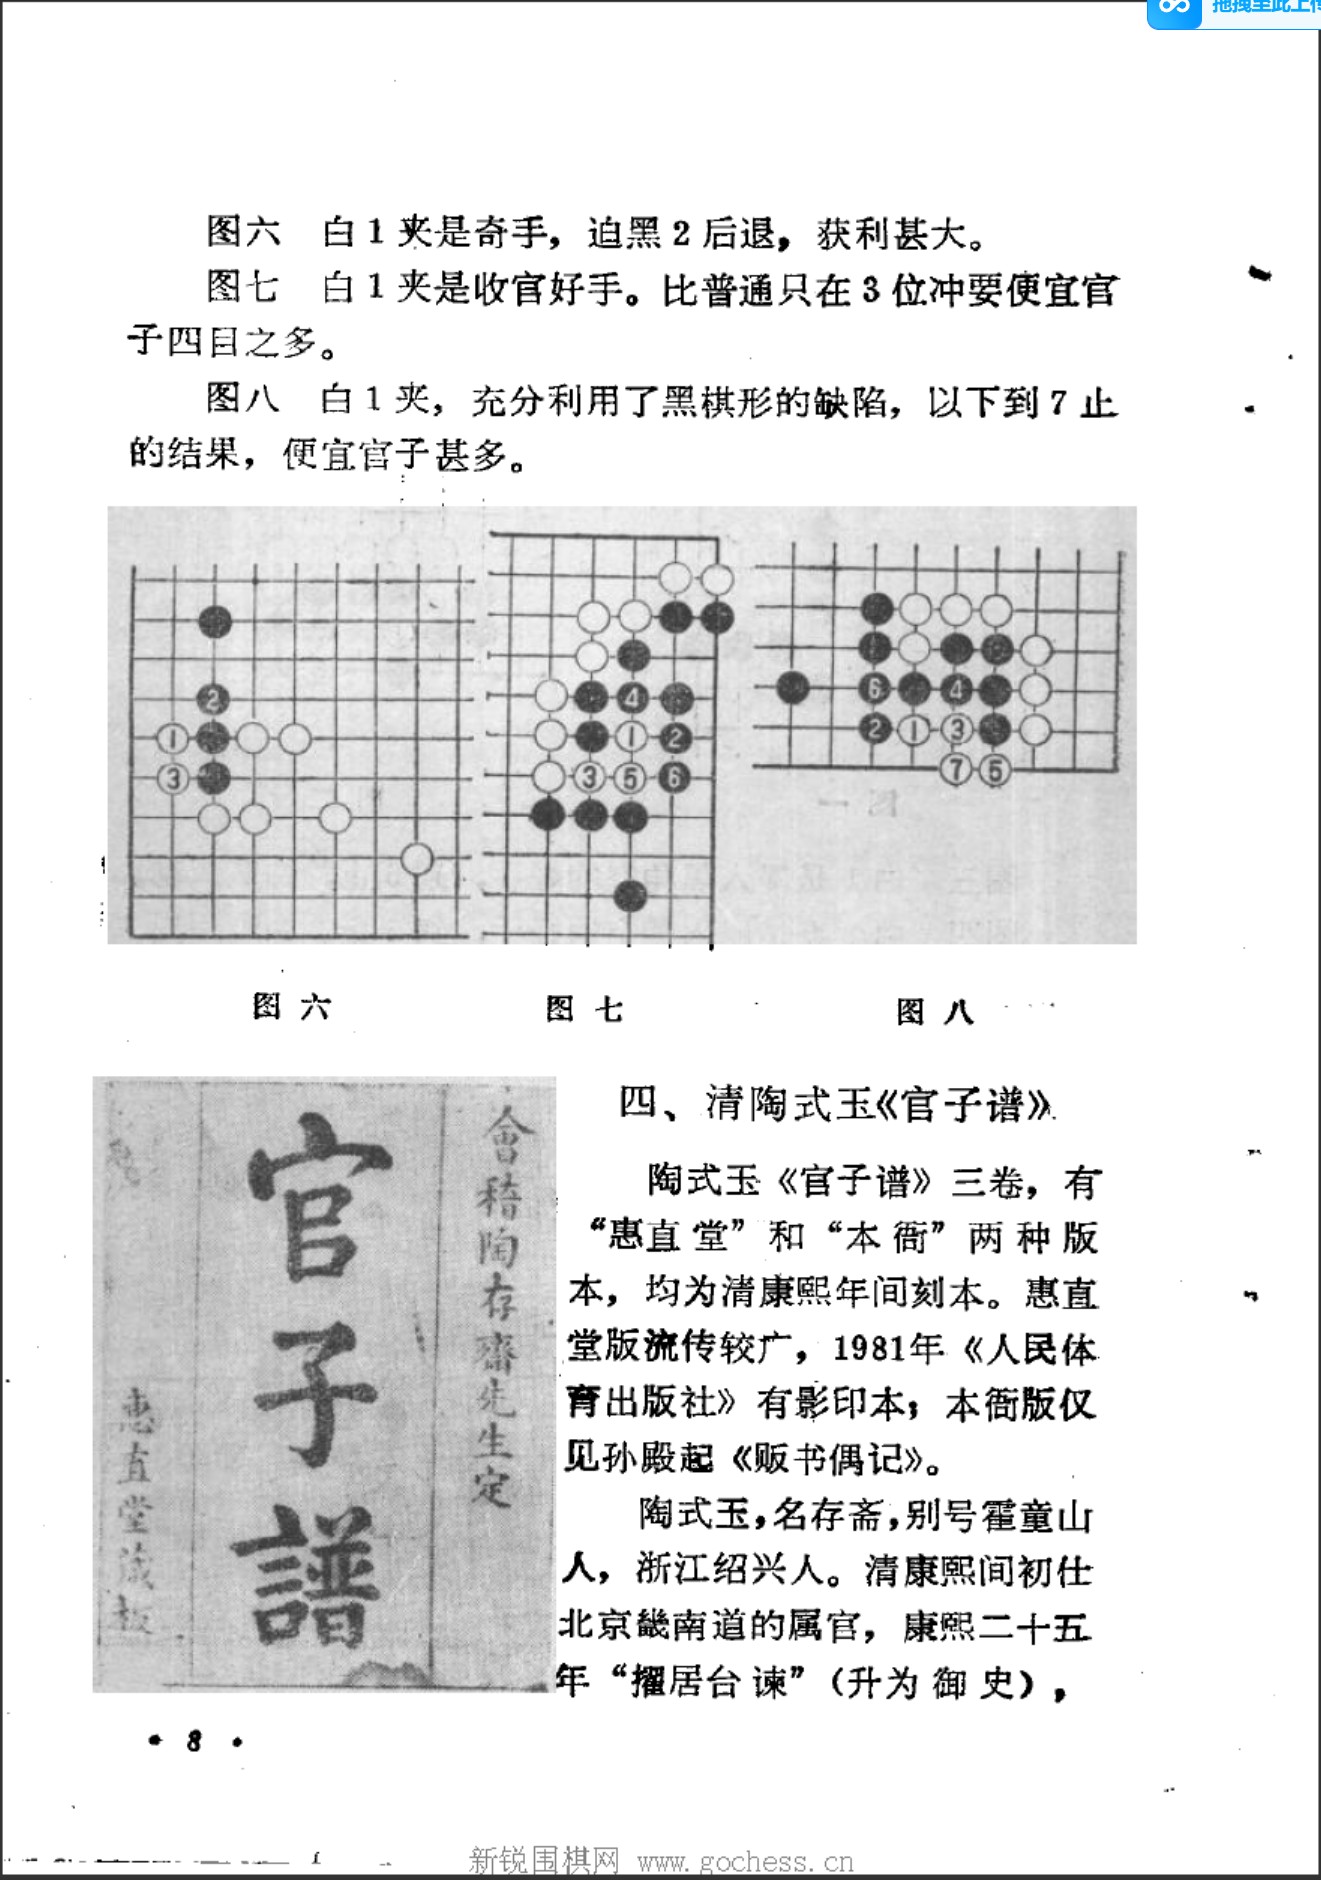 图六 白1夹是奇手，迫黑2后退，获利甚大。
图七 白1夹是收官好手。比普通只在3位冲要便宜官
子四目之多。
图八 白1夹，充分利用了黑棋形的缺陷，以下到7止
的结果，便宜官子甚多。
2
1
3
4
1 2
3 5 6
6 4
2 1 3
7 5
图六
图七
图八
會稽陶存齋先生定
官子譜
惠直堂藏板
四、清陶式玉《官子谱》
陶式玉《官子谱》三卷，有
“惠直堂”和“本衙”两种版
本，均为清康熙年间刻本。惠直
堂版流传较广，1981年《人民体
育出版社》有影印本；本衙版仅
见孙殿起《贩书偶记》。
陶式玉，名存斋，别号霍童山
人，浙江绍兴人。清康熙间初仕
北京畿南道的属官，康熙二十五
年“擢居台谏”（升为御史），
·8·
新锐围棋网 www.gochess.cn